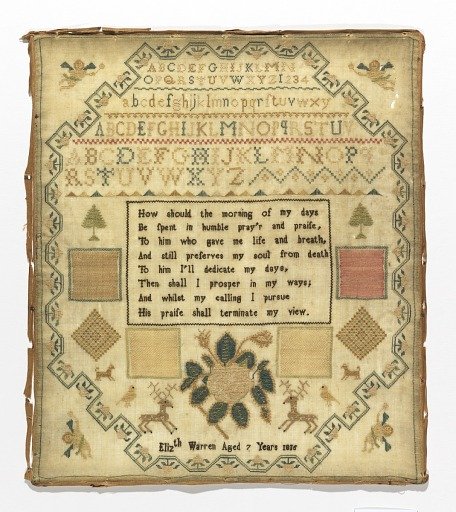 ABCDEFGHIJKLMN
OPQRSTUVWXYZ1234
abcdefghijklmnopqrſstuvwxy
ABCDEFGHIJKLMNOPQRSTUV
ABCDEFGHIJKLMNOPQ
RSTUVWXYZ
How should the morning of my days
Be ſpent in humble pray'r and praiſe,
To him who gave me life and breath,
And still preſerves my soul from death
To him I'll dedicate my days,
Then shall I prosper in my ways;
And whilst my calling I purſue
His praiſe shall terminate my view.
Elizth Warren Aged 7 Years